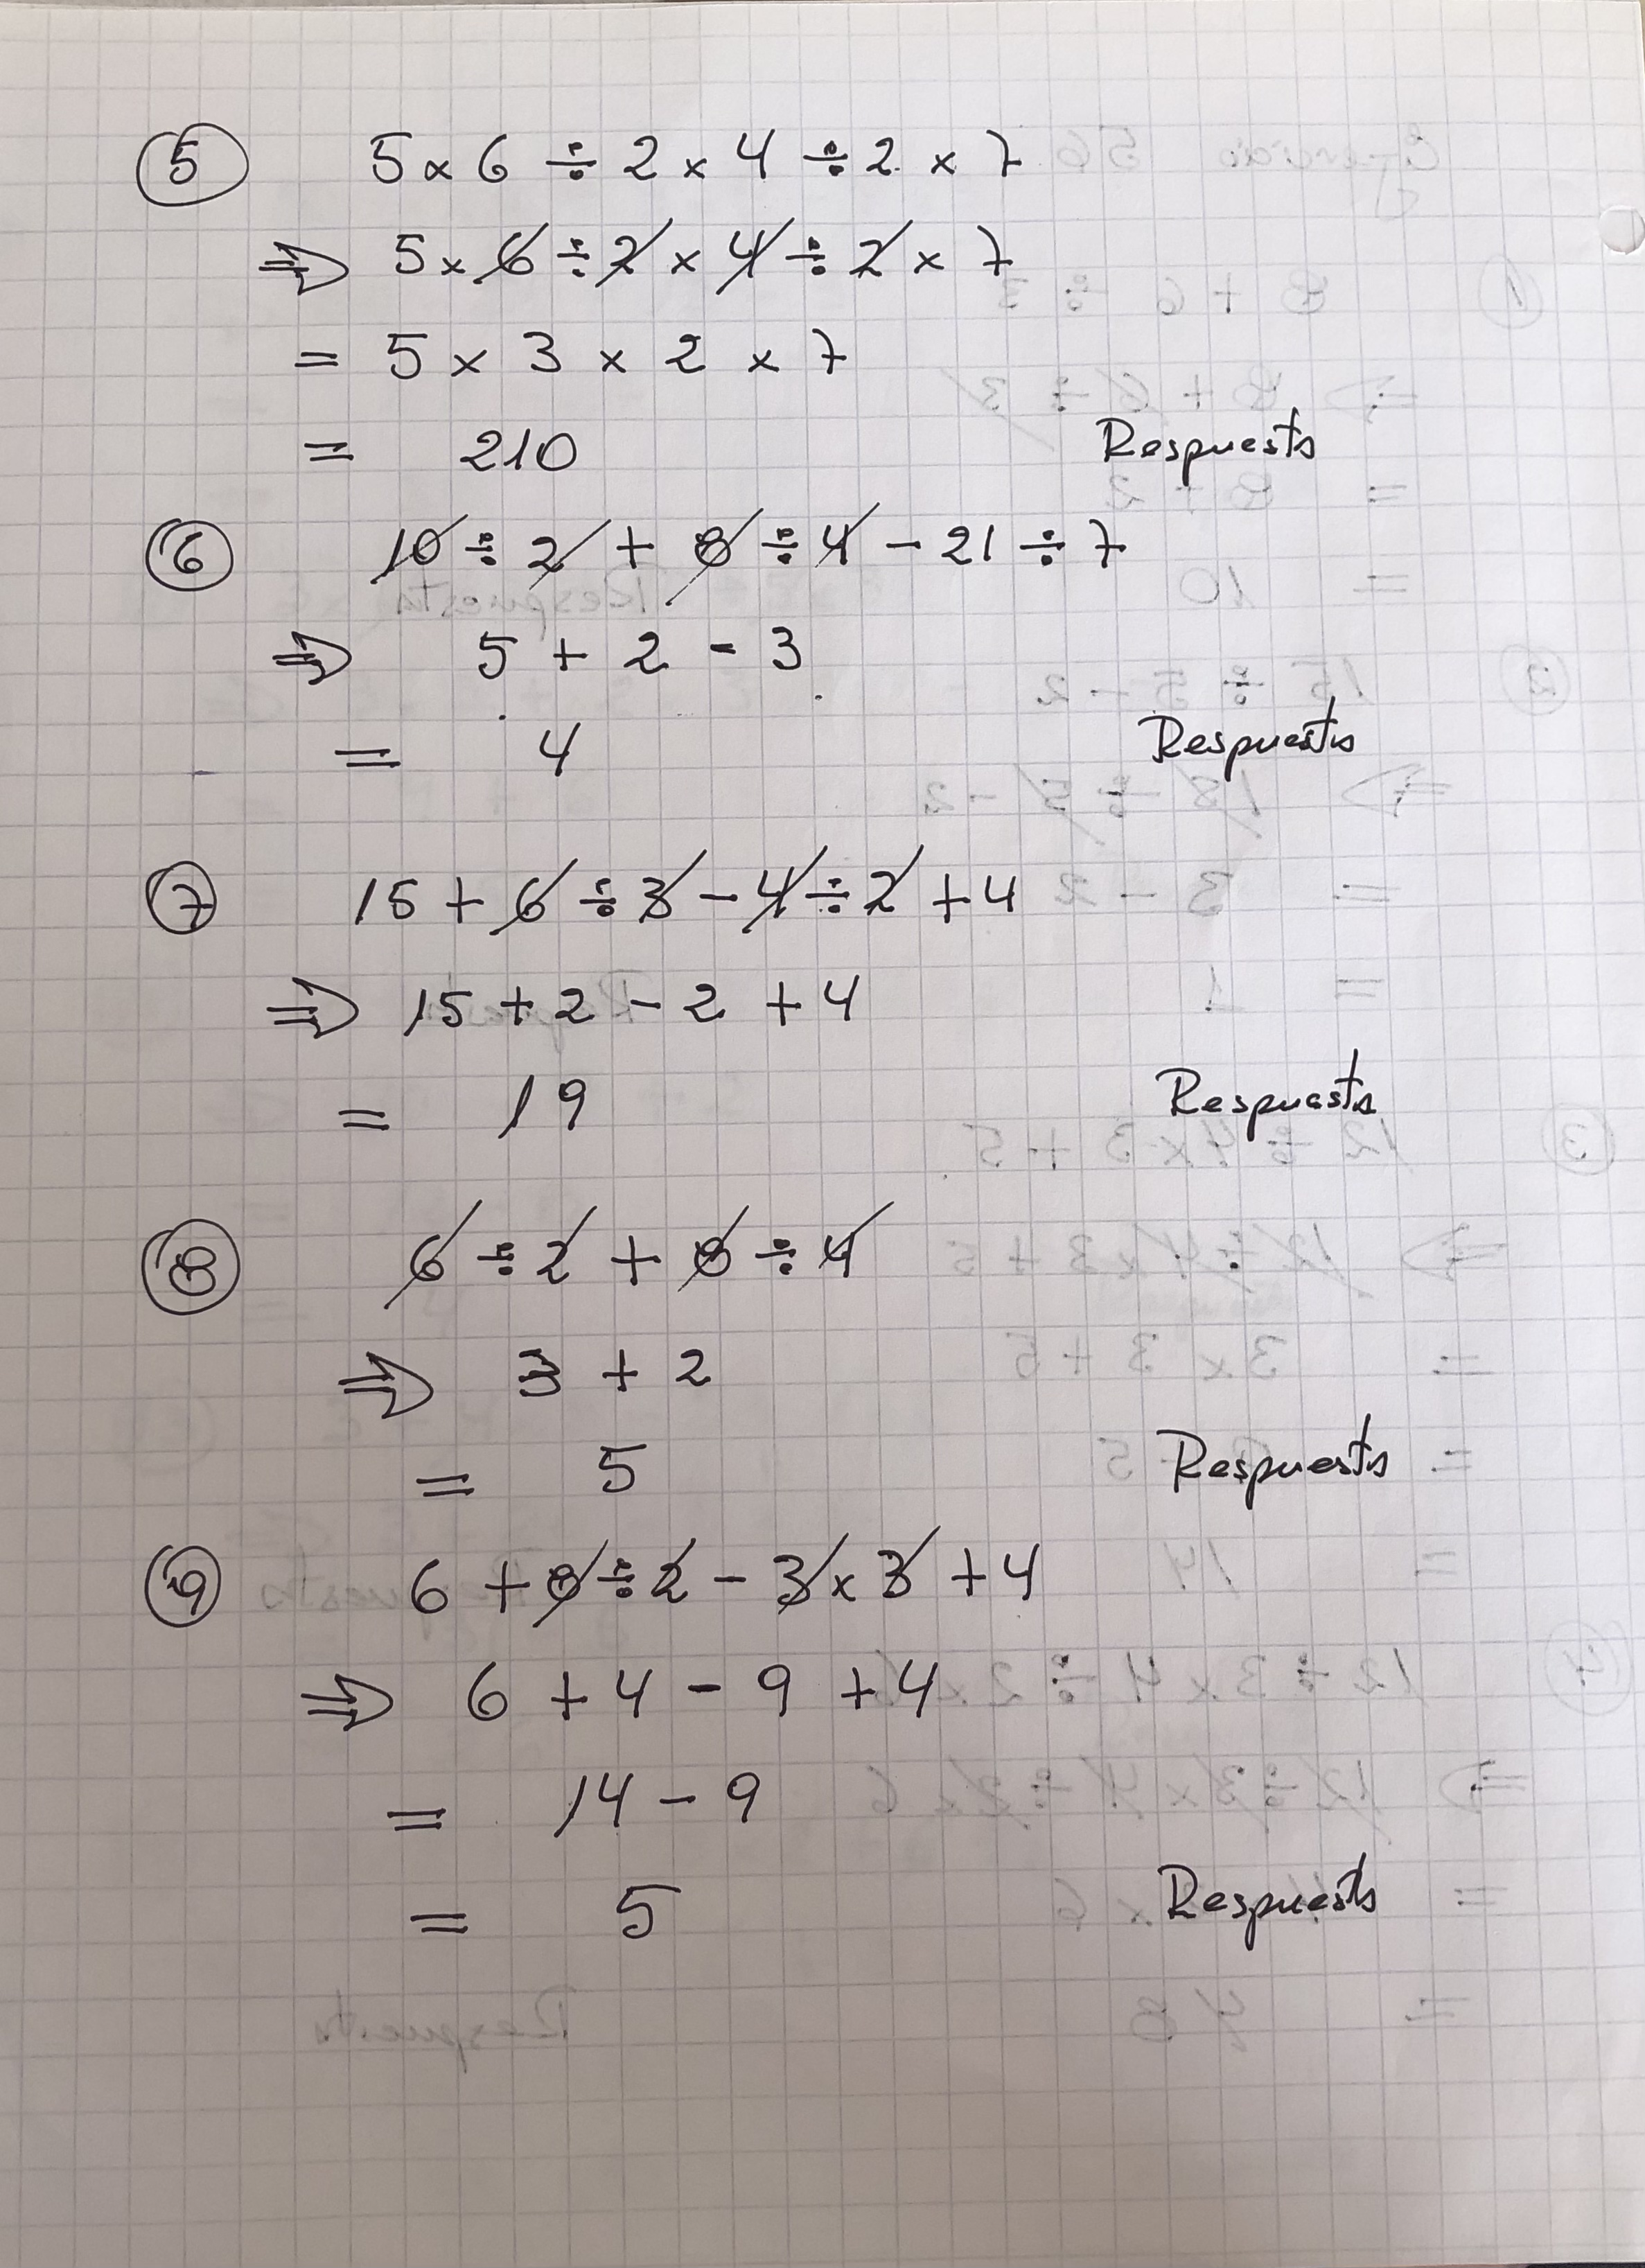 5 5 x 6 ÷ 2 x 4 ÷ 2 x 7
⇒ 5 x 6 ÷ 2 x 4 ÷ 2 x 7
= 5 x 3 x 2 x 7
= 210 Respuesta
6 10 ÷ 2 + 8 ÷ 4 - 21 ÷ 7
⇒ 5 + 2 - 3
= 4 Respuesta
7 15 + 6 ÷ 3 - 4 ÷ 2 + 4
⇒ 15 + 2 - 2 + 4
= 19 Respuesta
8 6 ÷ 2 + 8 ÷ 4
⇒ 3 + 2
= 5 Respuesta
9 6 + 8 ÷ 2 - 3 x 3 + 4
⇒ 6 + 4 - 9 + 4
= 14 - 9
= 5 Respuesta